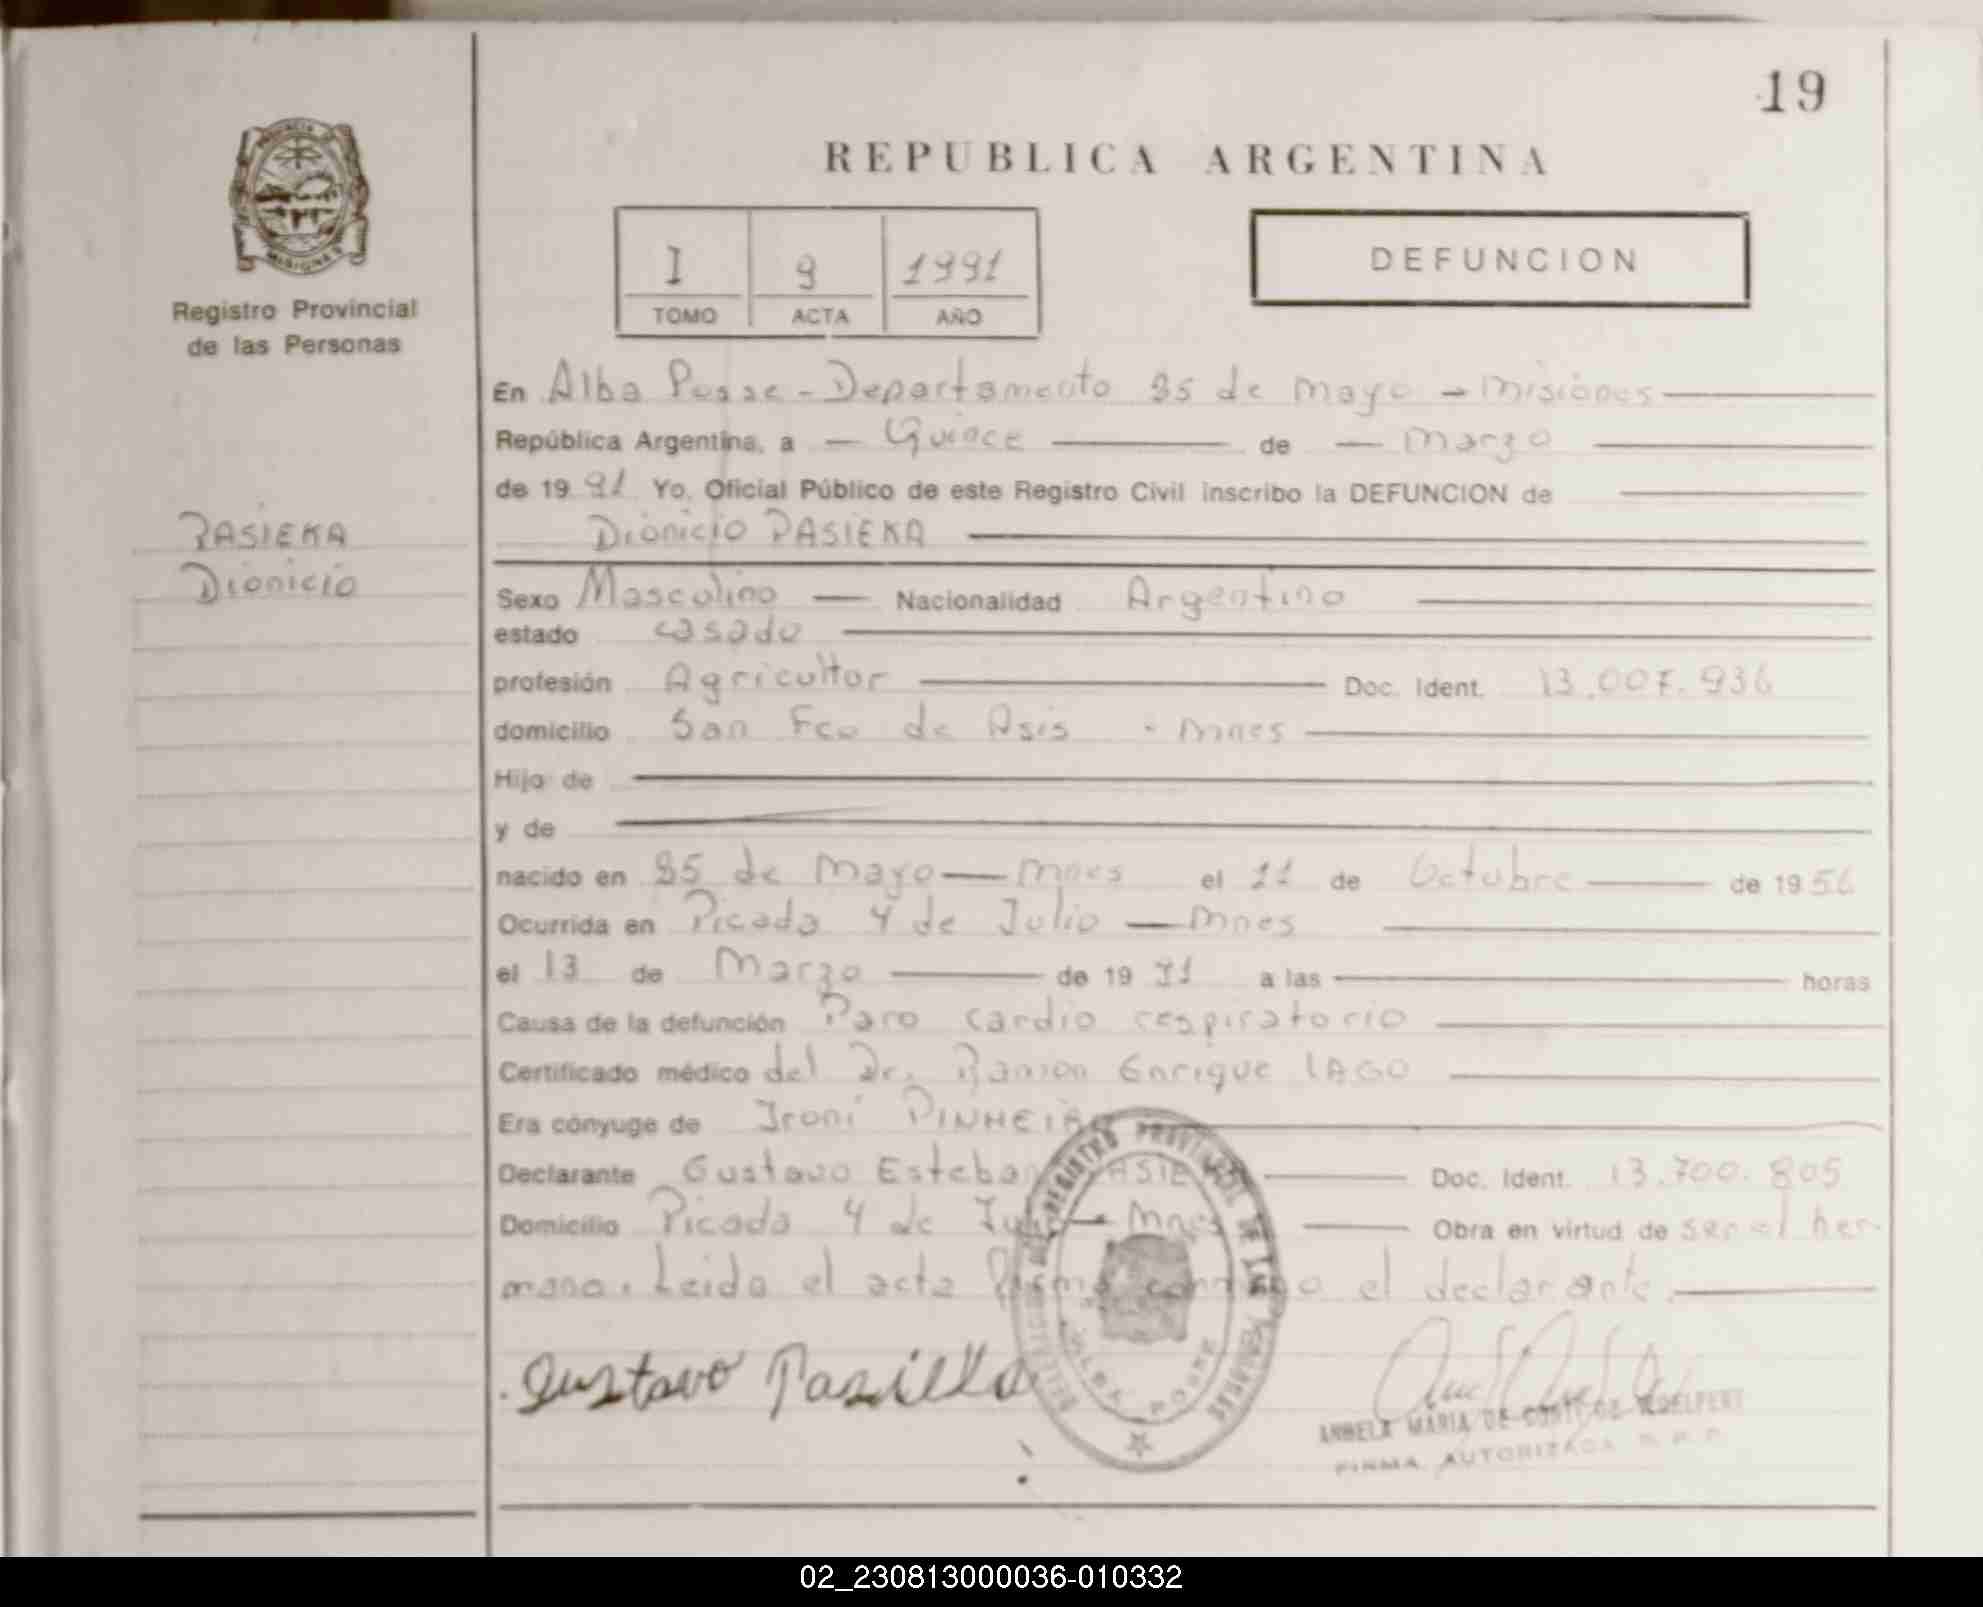 19
REPUBLICA ARGENTINA
PROVINCIA DE
MISIONES
Registro Provincial
de las Personas
I 9 1991
TOMO ACTA AÑO
DEFUNCION
En Alba Posse - Departamento 25 de Mayo - Misiones
República Argentina, a - Quince de - Marzo
de 19 91 Yo, Oficial Público de este Registro Civil inscribo la DEFUNCION de
Dionicio PASIEKA
PASIEKA
Dionicio
Sexo Masculino - Nacionalidad Argentino
estado casado
profesión Agricultor Doc. Ident. 13.007.936
domicilio San Fco de Asis - Mnes
Hijo de
y de
nacido en 25 de Mayo - Mnes el 11 de Octubre de 19 56
Ocurrida en Picada 4 de Julio - Mnes
el 13 de Marzo de 19 91 a las horas
Causa de la defunción Paro cardio respiratorio
Certificado médico del Dr. Ramon Enrique LAGO
Era cónyuge de Ironi PINHEIRO
Declarante Gustavo Esteban PASIEKA Doc. Ident. 13.700.805
Domicilio Picada 4 de Julio - Mnes Obra en virtud de ser el her-
mano. Leida el acta firma conmigo el declarante.
Gustavo
REGISTRO PROVINCIAL DE LAS PERSONAS
ALBA POSSE
MARIA DE
FIRMA AUTORIZADA R. P. P.
02_230813000036-010332